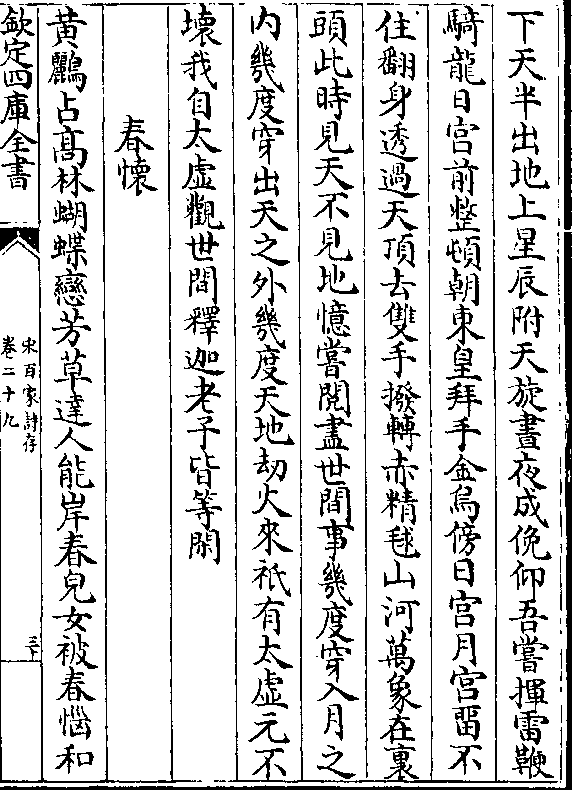 下天半出地上星辰附天旋晝夜成俛仰吾嘗揮雷鞭
騎龍日宫前整頓朝東皇拜手金烏傍日宫月宫畱不
住翻身透過天頂去雙手撥轉赤精毬山河萬象在裏
頭此時見天不見地憶嘗閱盡世間事幾度穿入月之
内幾度穿出天之外幾度天地劫火來祇有太虚元不
壞我自太虚觀世間釋迦老子皆等閑
春懷
黄鸝占髙林蝴蝶戀芳草達人能岸春兒女被春惱和
欽定四庫全書
宋百家詩存
卷二十九
三十